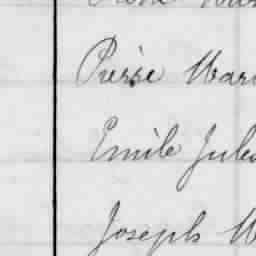 Pierre Mari
Emile Jules
Joseph M